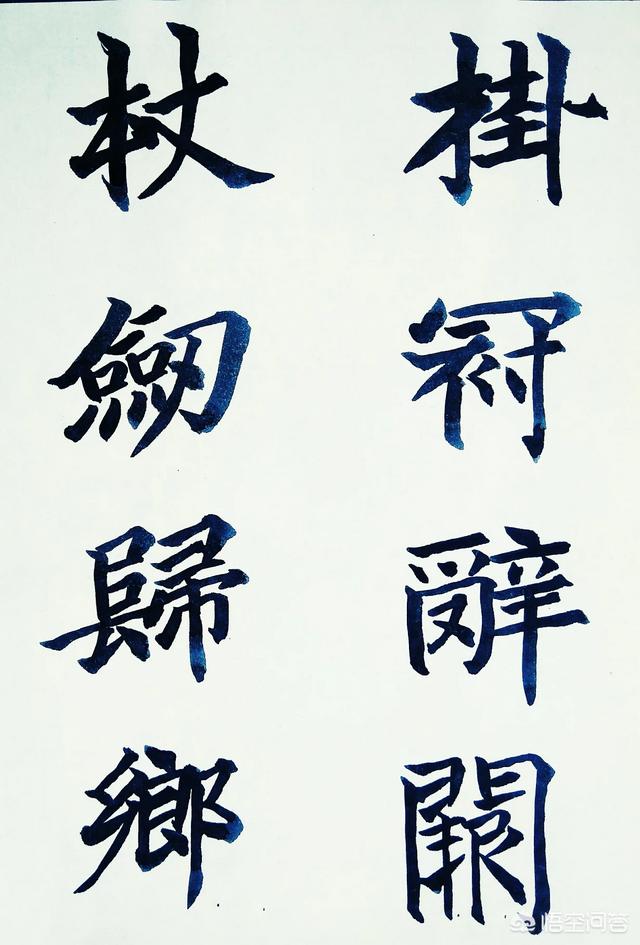 掛冠辭闕
杖劒歸鄉
悟空问答